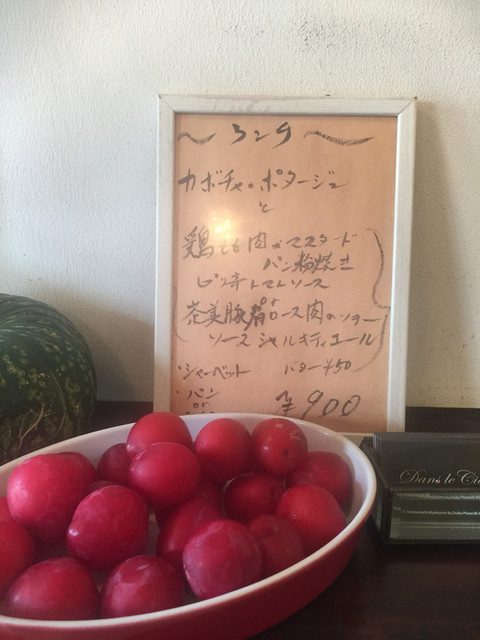 〜ランチ〜
カボチャのポタージュ
と
鶏もも肉のマスタード
パン粉焼き
ピリ辛トマトソース
or
茶美豚肩ロース肉のソテー
ソースシャルキティエール
・シャーベット
バター¥50
・パン
or
¥900
Dans le Ci